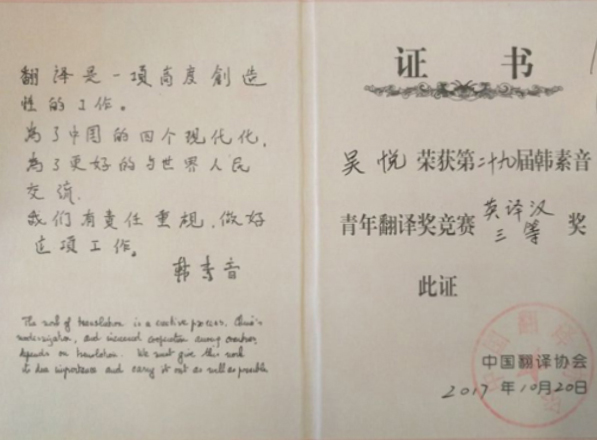 翻译是一項高度創造
性的工作。
為了中国的四个现代化,
為了更好的与世界人民
交流,
我们有責任重視,做好
这项工作。
韩素音
The work of translation is a creative process. China's
modernization, and increased cooperation among countries,
depends on translation. We must give this work
its due importance and carry it out as well as possible
证书
吴悦荣获第二十九届韩素音
青年翻译奖竞赛英译汉
三等奖
此证
中国翻译协会
2017年10月20日